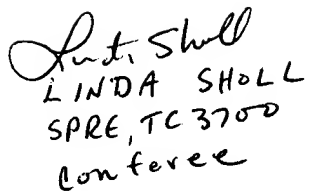 Linda Sholl
LINDA SHOLL
SPRE, TC 3700
Conferee